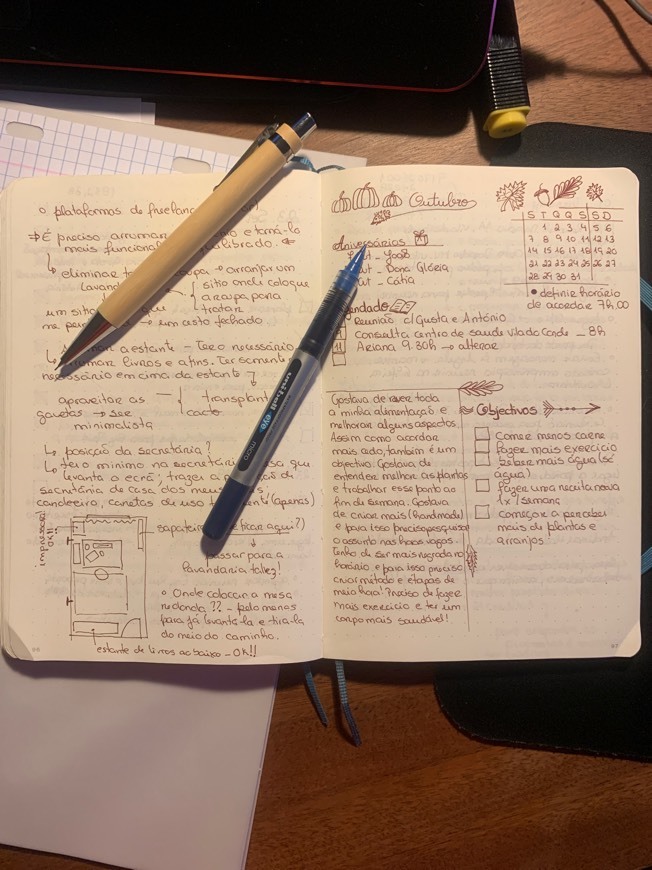 o plataformas de freelanc
⇒ É preciso arrumar o e torná-lo
mais funcional e equilibrado. ⇐
↳ eliminar → arranjar um
sítio onde coloque
a roupa para
tratar
um sítio que
me → um cesto fechado
a estante - Ter o necessário
arrumar livros e afins. Ter somente o
necessário em cima da estante ↴
aproveitar as
gavetas → ser
minimalista
transplantar
cacto
↳ posição da secretária?
↳ ter o mínimo na secretária
levanta o ecrã; trazer a
secretária de casa dos meus
candeeiro, canetas de uso (apenas)
impressora
OK!!
sapateira ficar aqui?)
passar para a
lavandaria talvez!
o Onde colocar a mesa
redonda ?? - pelo menos
para já levantá-la e tirá-la
do meio do caminho.
estante de livros ao baixo - OK!!
Outubro
Aniversários
- João
- Dona Glória
- Cátia
Reunião c/ Gusta e António
Consulta Centro de saúde Vila do Conde - 8h
11 Ariana 9.30h → alterar
Gostava de rever toda
a minha alimentação e
melhorar alguns aspectos.
Assim como acordar
mais cedo, também é um
objectivo. Gostava de
entender melhor as plantas
e trabalhar esse ponto ao
fim de semana. Gostava
de criar mais (handmade)
e para isso preciso pesquisar
o assunto nas horas vagas.
Tenho de ser mais regrada no
horário e para isso preciso
criar método e etapas de
meia hora! Preciso de fazer
mais exercício e ter um
corpo mais saudável!
S T Q Q S S D
1 2 3 4 5 6
7 8 9 10 11 12 13
14 15 16 17 18 19 20
21 22 23 24 25 26 27
28 29 30 31
• definir horário
de acordar 7h,00
Objectivos
Comer menos carne
Fazer mais exercício
Beber mais água (só
água)
Fazer uma receita nova
1x/semana
Começar a perceber
mais de plantas e
arranjos
uni-ball eye
micro